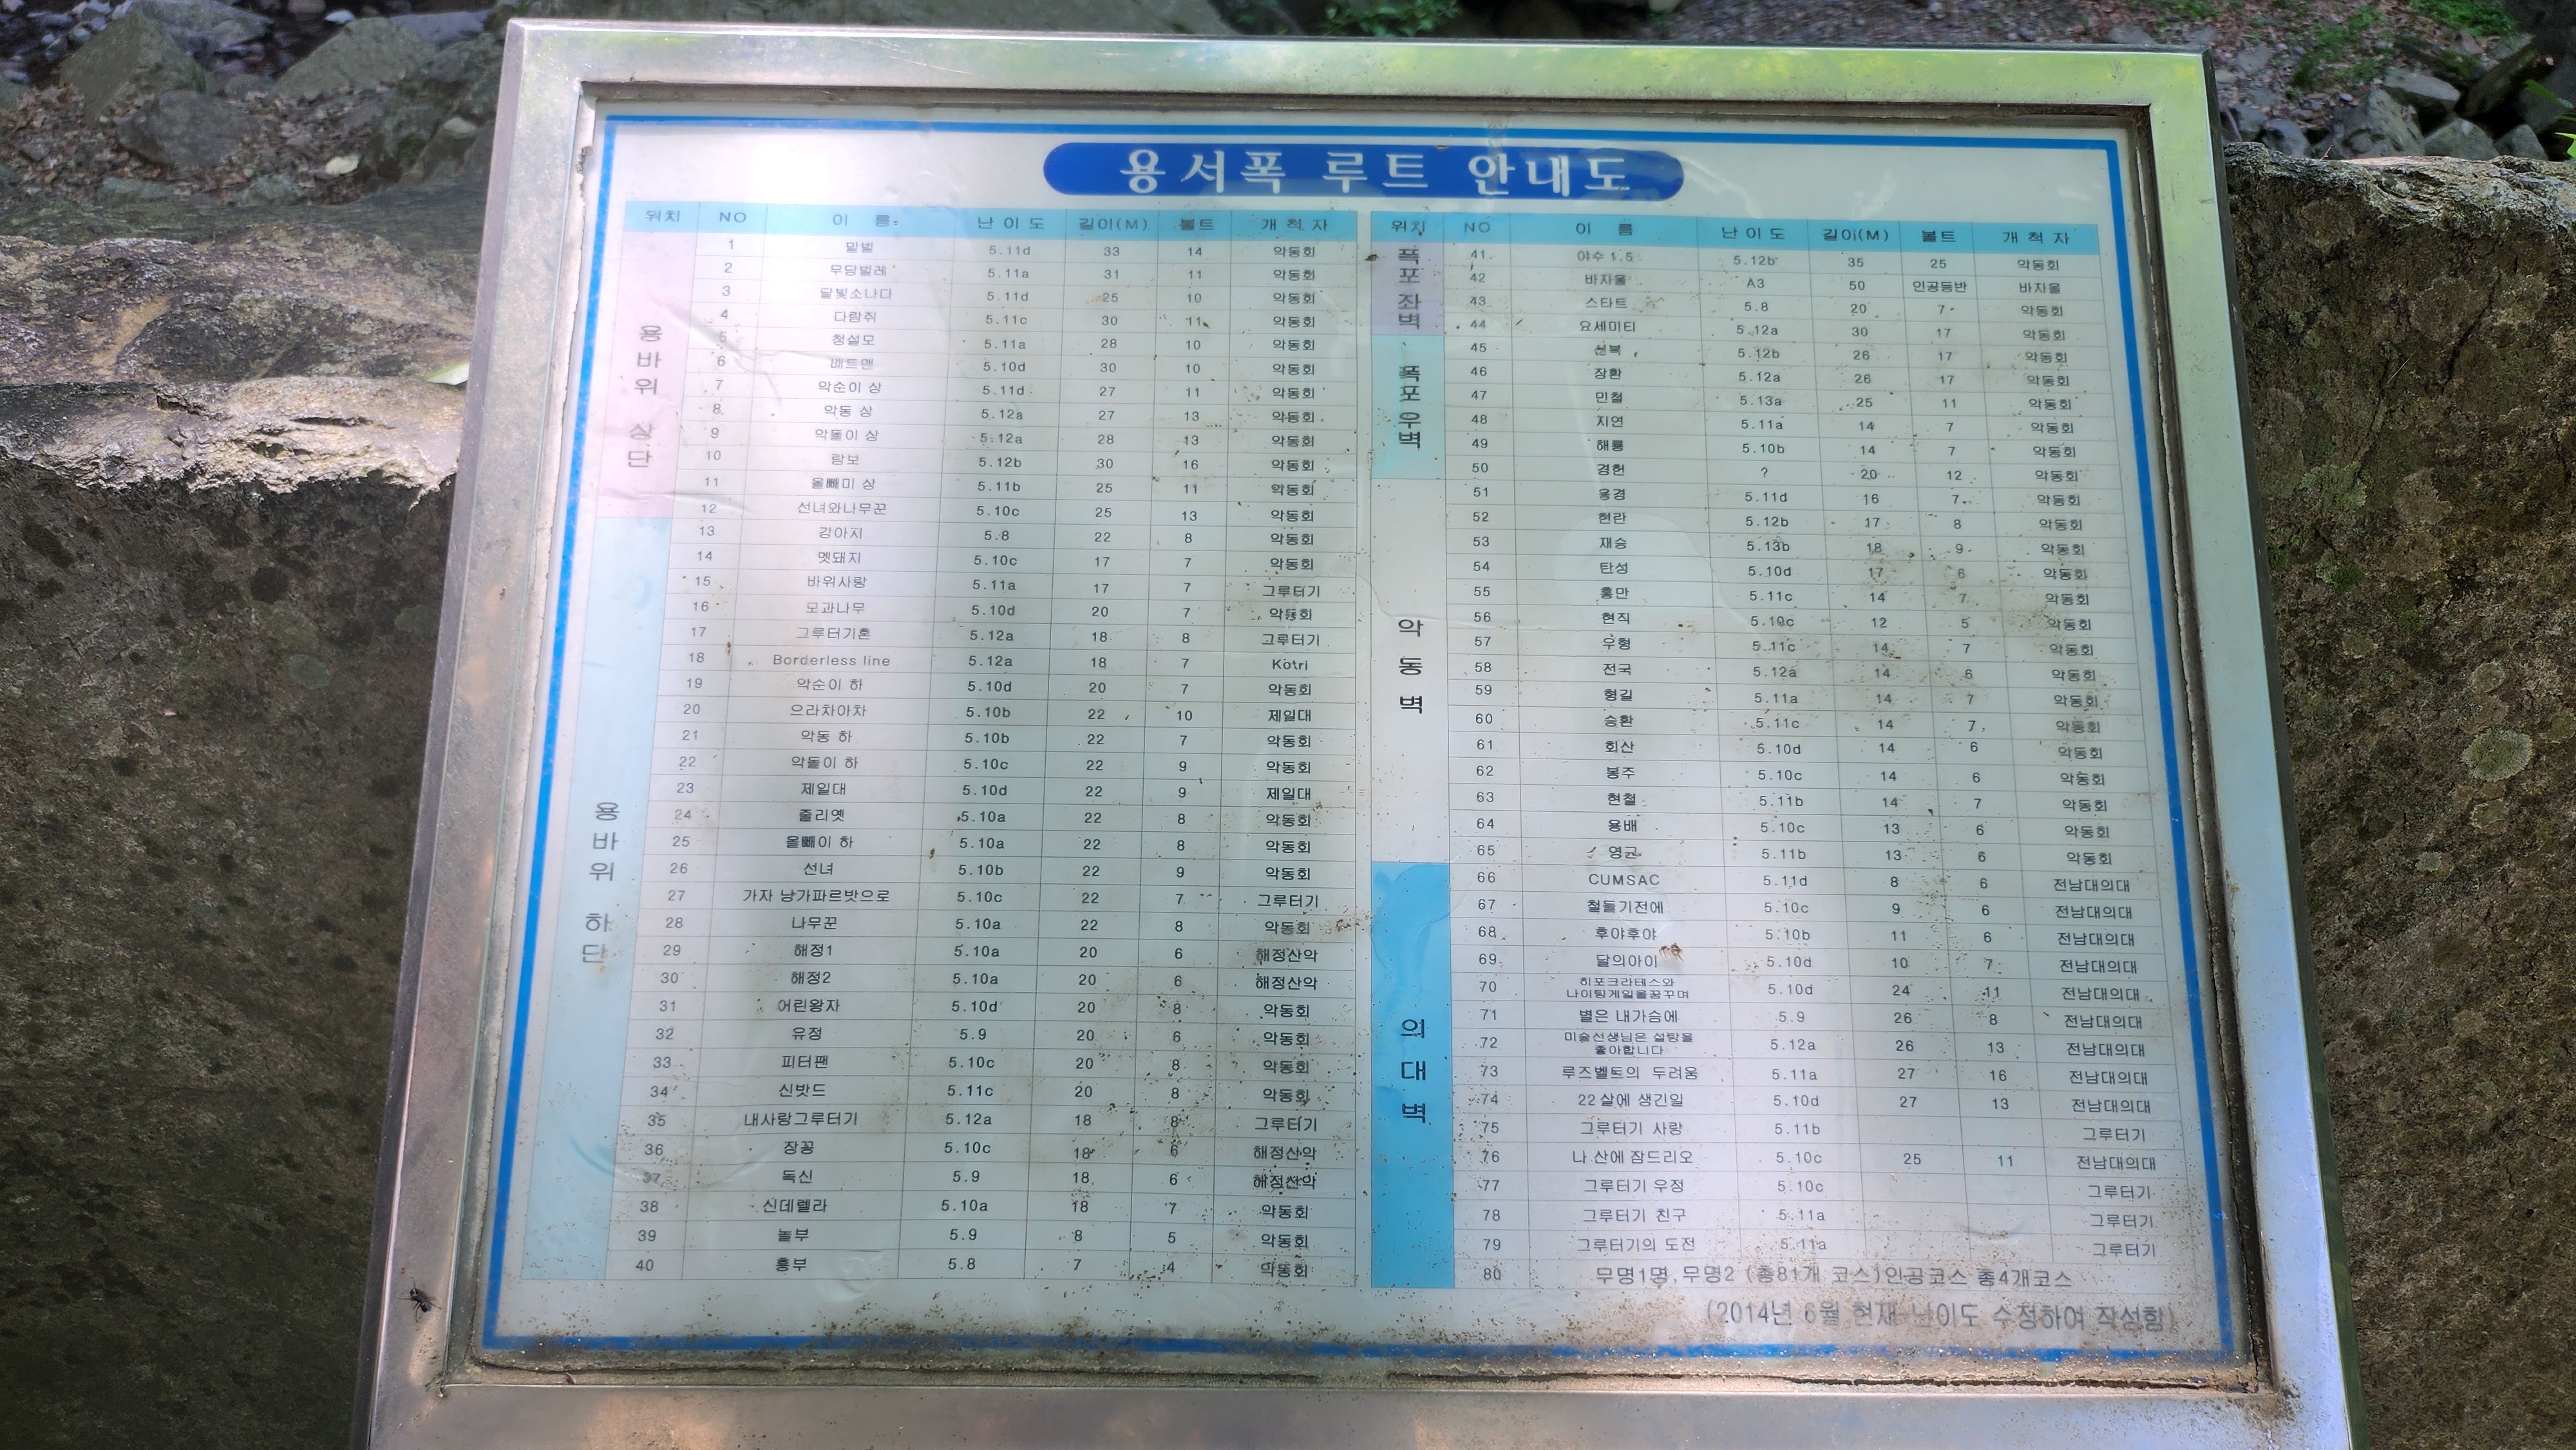 용서폭 루트 안내도
위치 NO 이 름 난 이 도 길이(M) 볼트 개 척 자
용바위 상단
1 말벌 5.11d 33 14 악동회
2 무당벌레 5.11a 31 11 악동회
3 달빛소나다 5.11d 25 10 악동회
4 다람쥐 5.11c 30 11 악동회
5 청설모 5.11a 28 10 악동회
6 배트맨 5.10d 30 10 악동회
7 악순이 상 5.11d 27 11 악동회
8 악동 상 5.12a 27 13 악동회
9 악돌이 상 5.12a 28 13 악동회
10 람보 5.12b 30 16 악동회
11 올빼미 상 5.11b 25 11 악동회
12 선녀와나무꾼 5.10c 25 13 악동회
용바위 하단
13 강아지 5.8 22 8 악동회
14 멧돼지 5.10c 17 7 악동회
15 바위사랑 5.11a 17 7 그루터기
16 모과나무 5.10d 20 7 악동회
17 그루터기혼 5.12a 18 8 그루터기
18 Borderless line 5.12a 18 7 Kotri
19 악순이 하 5.10d 20 7 악동회
20 으라차아차 5.10b 22 10 제일대
21 악동 하 5.10b 22 7 악동회
22 악돌이 하 5.10c 22 9 악동회
23 제일대 5.10d 22 9 제일대
24 줄리엣 5.10a 22 8 악동회
25 올빼이 하 5.10a 22 8 악동회
26 선녀 5.10b 22 9 악동회
27 가자 낭가파르밧으로 5.10c 22 7 그루터기
28 나무꾼 5.10a 22 8 악동회
29 해정1 5.10a 20 6 해정산악
30 해정2 5.10a 20 6 해정산악
31 어린왕자 5.10d 20 8 악동회
32 유정 5.9 20 6 악동회
33 피터팬 5.10c 20 8 악동회
34 신밧드 5.11c 20 8 악동회
35 내사랑그루터기 5.12a 18 8 그루터기
36 장꽁 5.10c 18 6 해정산악
37 독신 5.9 18 6 해정산악
38 신데렐라 5.10a 18 7 악동회
39 놀부 5.9 8 5 악동회
40 흥부 5.8 7 4 악동회
위치 NO 이 름 난 이 도 길이(M) 볼트 개 척 자
폭포 좌벽
41 야수 1.5 5.12b 35 25 악동회
42 바자울 A3 50 인공등반 바자울
43 스타트 5.8 20 7 악동회
44 요세미티 5.12a 30 17 악동회
폭포 우벽
45 5.12b 26 17 악동회
46 장환 5.12a 26 17 악동회
47 민철 5.13a 25 11 악동회
48 지연 5.11a 14 7 악동회
49 해룡 5.10b 14 7 악동회
50 경헌 ? 20 12 악동회
악동벽
51 용경 5.11d 16 7 악동회
52 현란 5.12b 17 8 악동회
53 재승 5.13b 18 9 악동회
54 탄성 5.10d 17 6 악동회
55 홍만 5.11c 14 7 악동회
56 현직 5.10c 12 5 악동회
57 우형 5.11c 14 7 악동회
58 전국 5.12a 14 6 악동회
59 형길 5.11a 14 7 악동회
60 승환 5.11c 14 7 악동회
61 회산 5.10d 14 6 악동회
62 봉주 5.10c 14 6 악동회
63 현철 5.11b 14 7 악동회
64 용배 5.10c 13 6 악동회
65 영근 5.11b 13 6 악동회
의대벽
66 CUMSAC 5.11d 8 6 전남대의대
67 철들기전에 5.10c 9 6 전남대의대
68 후야후야 5.10b 11 6 전남대의대
69 달의아이 5.10d 10 7 전남대의대
70 히포크라테스와 나이팅게일을꿈꾸며 5.10d 24 11 전남대의대
71 별은 내가슴에 5.9 26 8 전남대의대
72 미술선생님은 설탕을 좋아합니다 5.12a 26 13 전남대의대
73 루즈벨트의 두려움 5.11a 27 16 전남대의대
74 22살에 생긴일 5.10d 27 13 전남대의대
75 그루터기 사랑 5.11b 그루터기
76 나 산에 잠드리오 5.10c 25 11 전남대의대
77 그루터기 우정 5.10c 그루터기
78 그루터기 친구 5.11a 그루터기
79 그루터기의 도전 5.11a 그루터기
80 무명1명,무명2 (총81개 코스)인공코스 총4개코스
(2014년 6월 현재 난이도 수정하여 작성함)